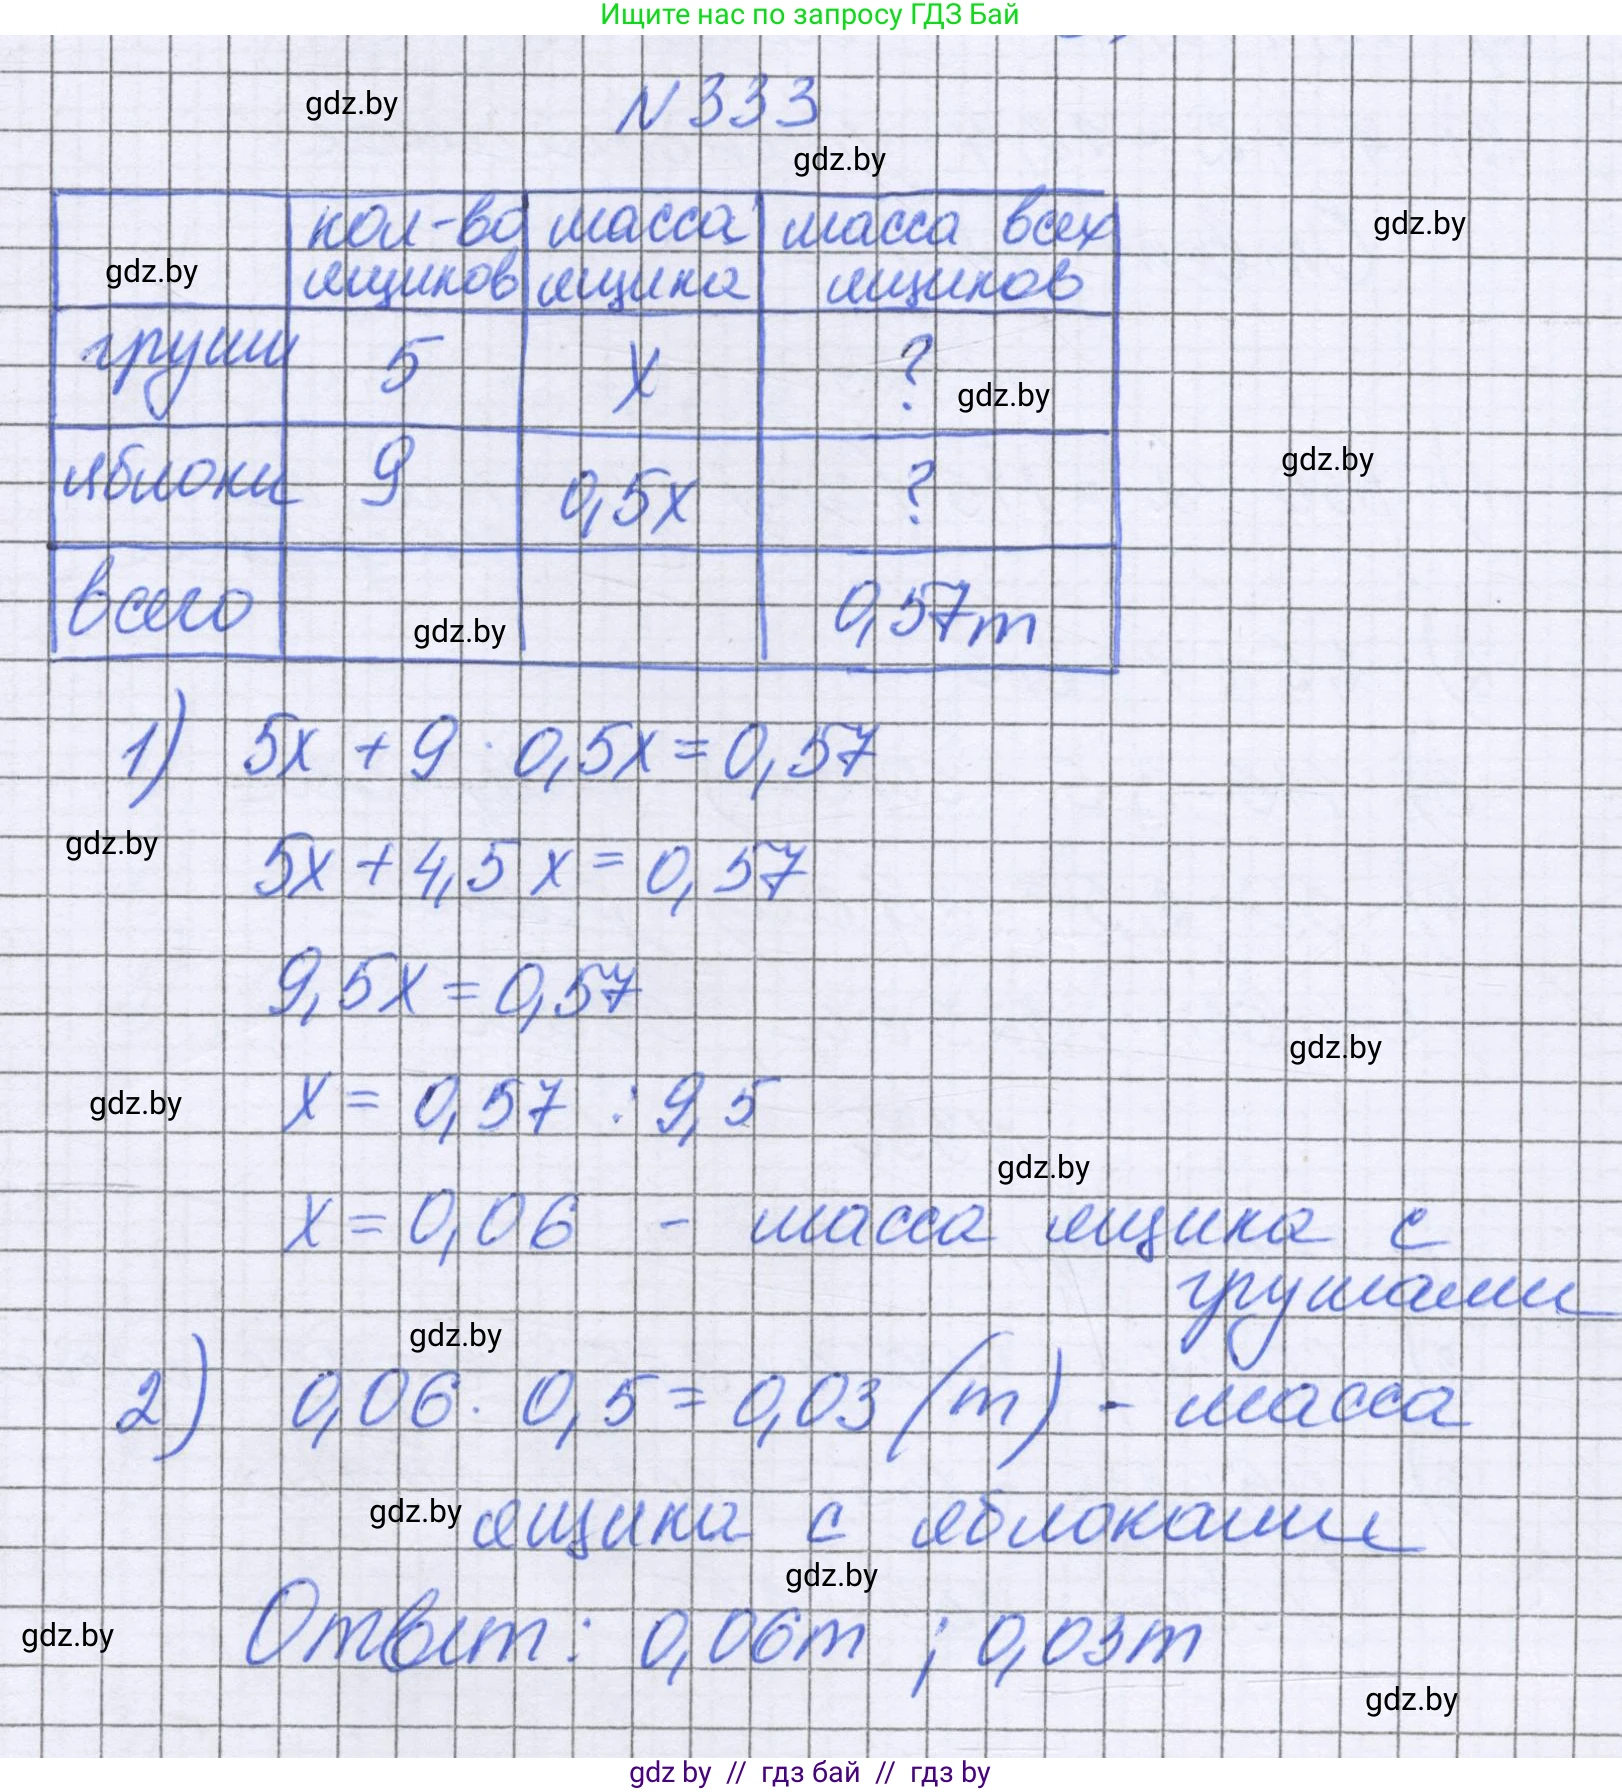 Ищите нас по запросу ГДЗ Бай
N 333
gdz.by
gdz.by
кол-во масса масса всех
gdz.by
ящиков ящика ящиков
gdz.by
груши 5 x ?
gdz.by
яблоки 9 0,5x ?
gdz.by
всего 0,57т
gdz.by
1) 5x + 9 · 0,5x = 0,57
gdz.by
5x + 4,5x = 0,57
9,5x = 0,57
gdz.by
x = 0,57 : 9,5
gdz.by
gdz.by
x = 0,06 - масса ящика с
грушами
gdz.by
2) 0,06 · 0,5 = 0,03 (т) - масса
gdz.by ящика с яблоками
gdz.by
Ответ: 0,06т ; 0,03т
gdz.by
gdz.by
gdz by // гдз бай // гдз by